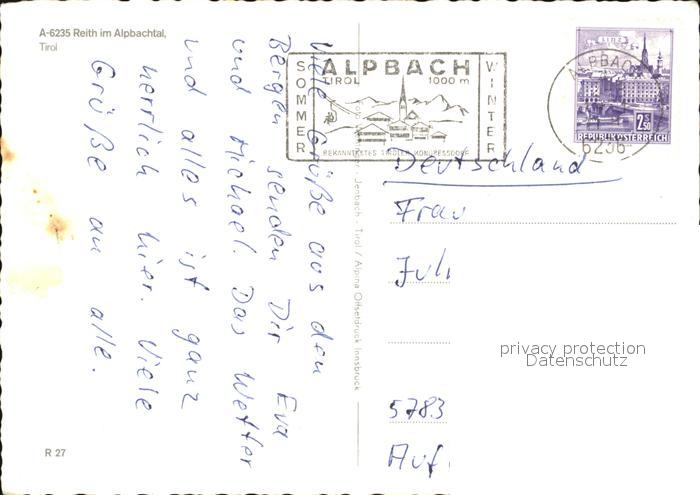 A-6235 Reith im Alpbachtal,
Tirol
Viele Grüße aus den
Bergen senden Dir Eva
und Michael. Das Wetter
und alles ist ganz
herrlich hier. Viele
Grüße an alle.
R 27
Jenbach - Tirol / Alpina Offsetdruck Innsbruck
SOMMER
ALPBACH
TIROL 1000 m
BEKANNTESTES TIROLER KONGRESSDORF
WINTER
ALPBACH
6236
LINZ
2.50 S
REPUBLIK ÖSTERREICH
Deutschland
Frau
Juli
5783
Auf
privacy protection
Datenschutz